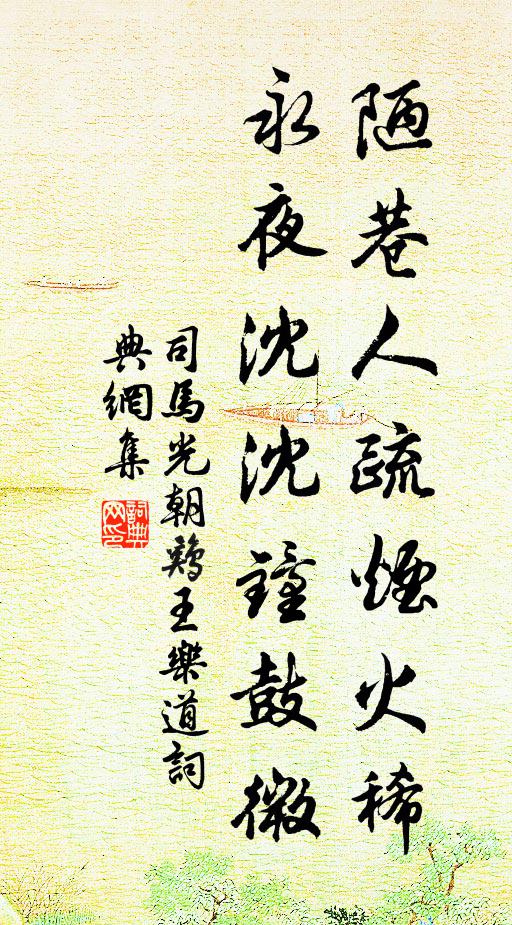 陋巷人疏煙火稀
永夜沈沈鐘鼓微
司馬光朝鷄王樂道詞
典網集
詞典
网印